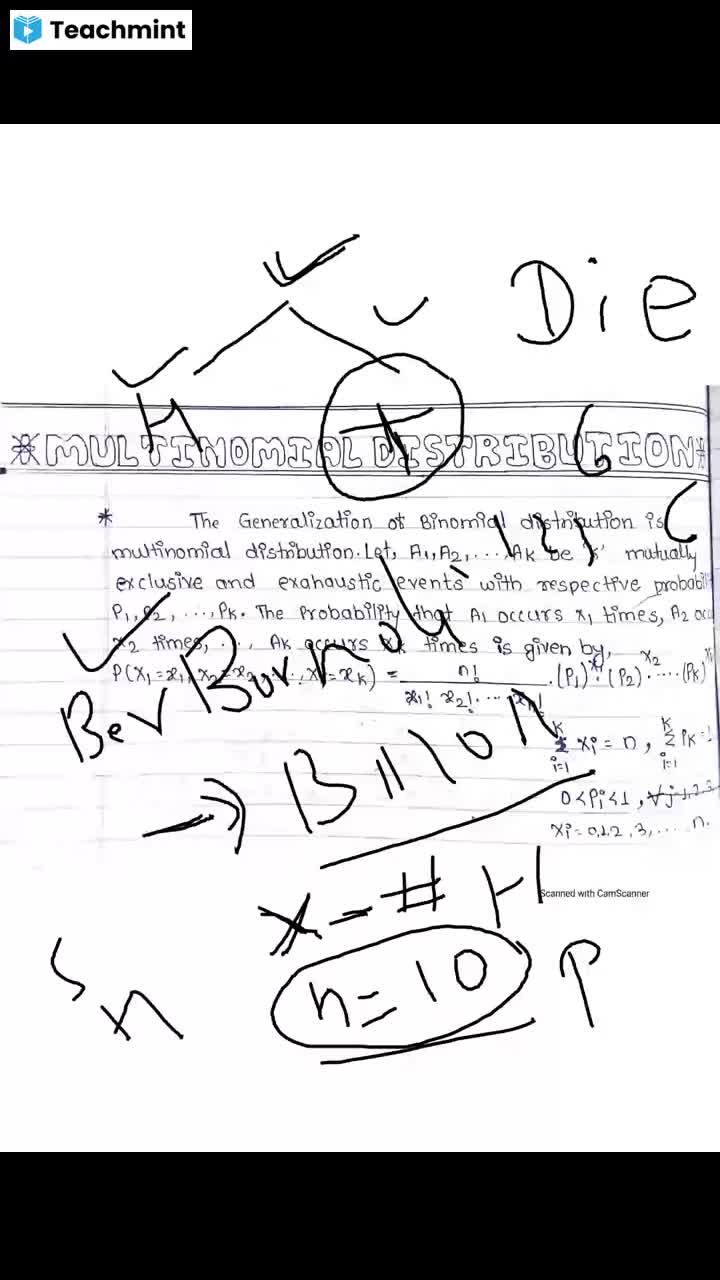 Teachmint
Die
H T
6
*MULTINOMIAL DISTRIBUTION*
* The Generalization of Binomial distribution is
multinomial distribution. Let, A1, A2, ...., AK be 'k' mutually
exclusive and exahaustic events with respective probabili
P1, P2, ..., PK. The Probability that A1 occurs x1 times, A2 occ
x2 times, ..., AK occurs xk times is given by,
P(X1 = x1, x2 = x2, ..., = xK) = n! / x1! x2! ... ! . (P1) . (P2)^x2 ..... (PK)
K Σ i=1 xi = n, K Σ i=1 PK = 1
0 < Pi < 1, ∀ j = 1, 2, 3
xi = 0, 1, 2, 3, .... n.
X - # H
Scanned with CamScanner
n = 10 P
n